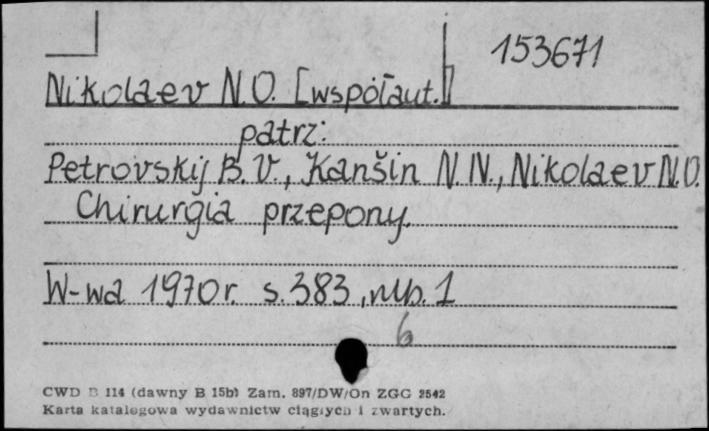 153671
Nikolaev N.O. [współaut.]
patrz:
Petrovskij B.V., Kanšin N.N., Nikolaev N.O.
Chirurgia przepony.
W-wa 1970 r. s. 383, nlb. 1
6
CWD B 114 (dawny B 15b) Zam. 897/DW/On ZGG 2542
Karta katalogowa wydawnictw ciągłych i zwartych.